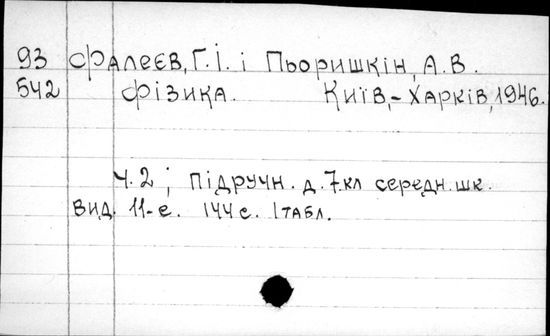 93 Фалеєв, Г.І. і Пьоришкін, А.В.
542 Фізика. Київ,-Харків, 1946.
Ч.2; Підручн. д. 7.кл середн. шк.
Вид. 11-е. 144с. 1 табл.